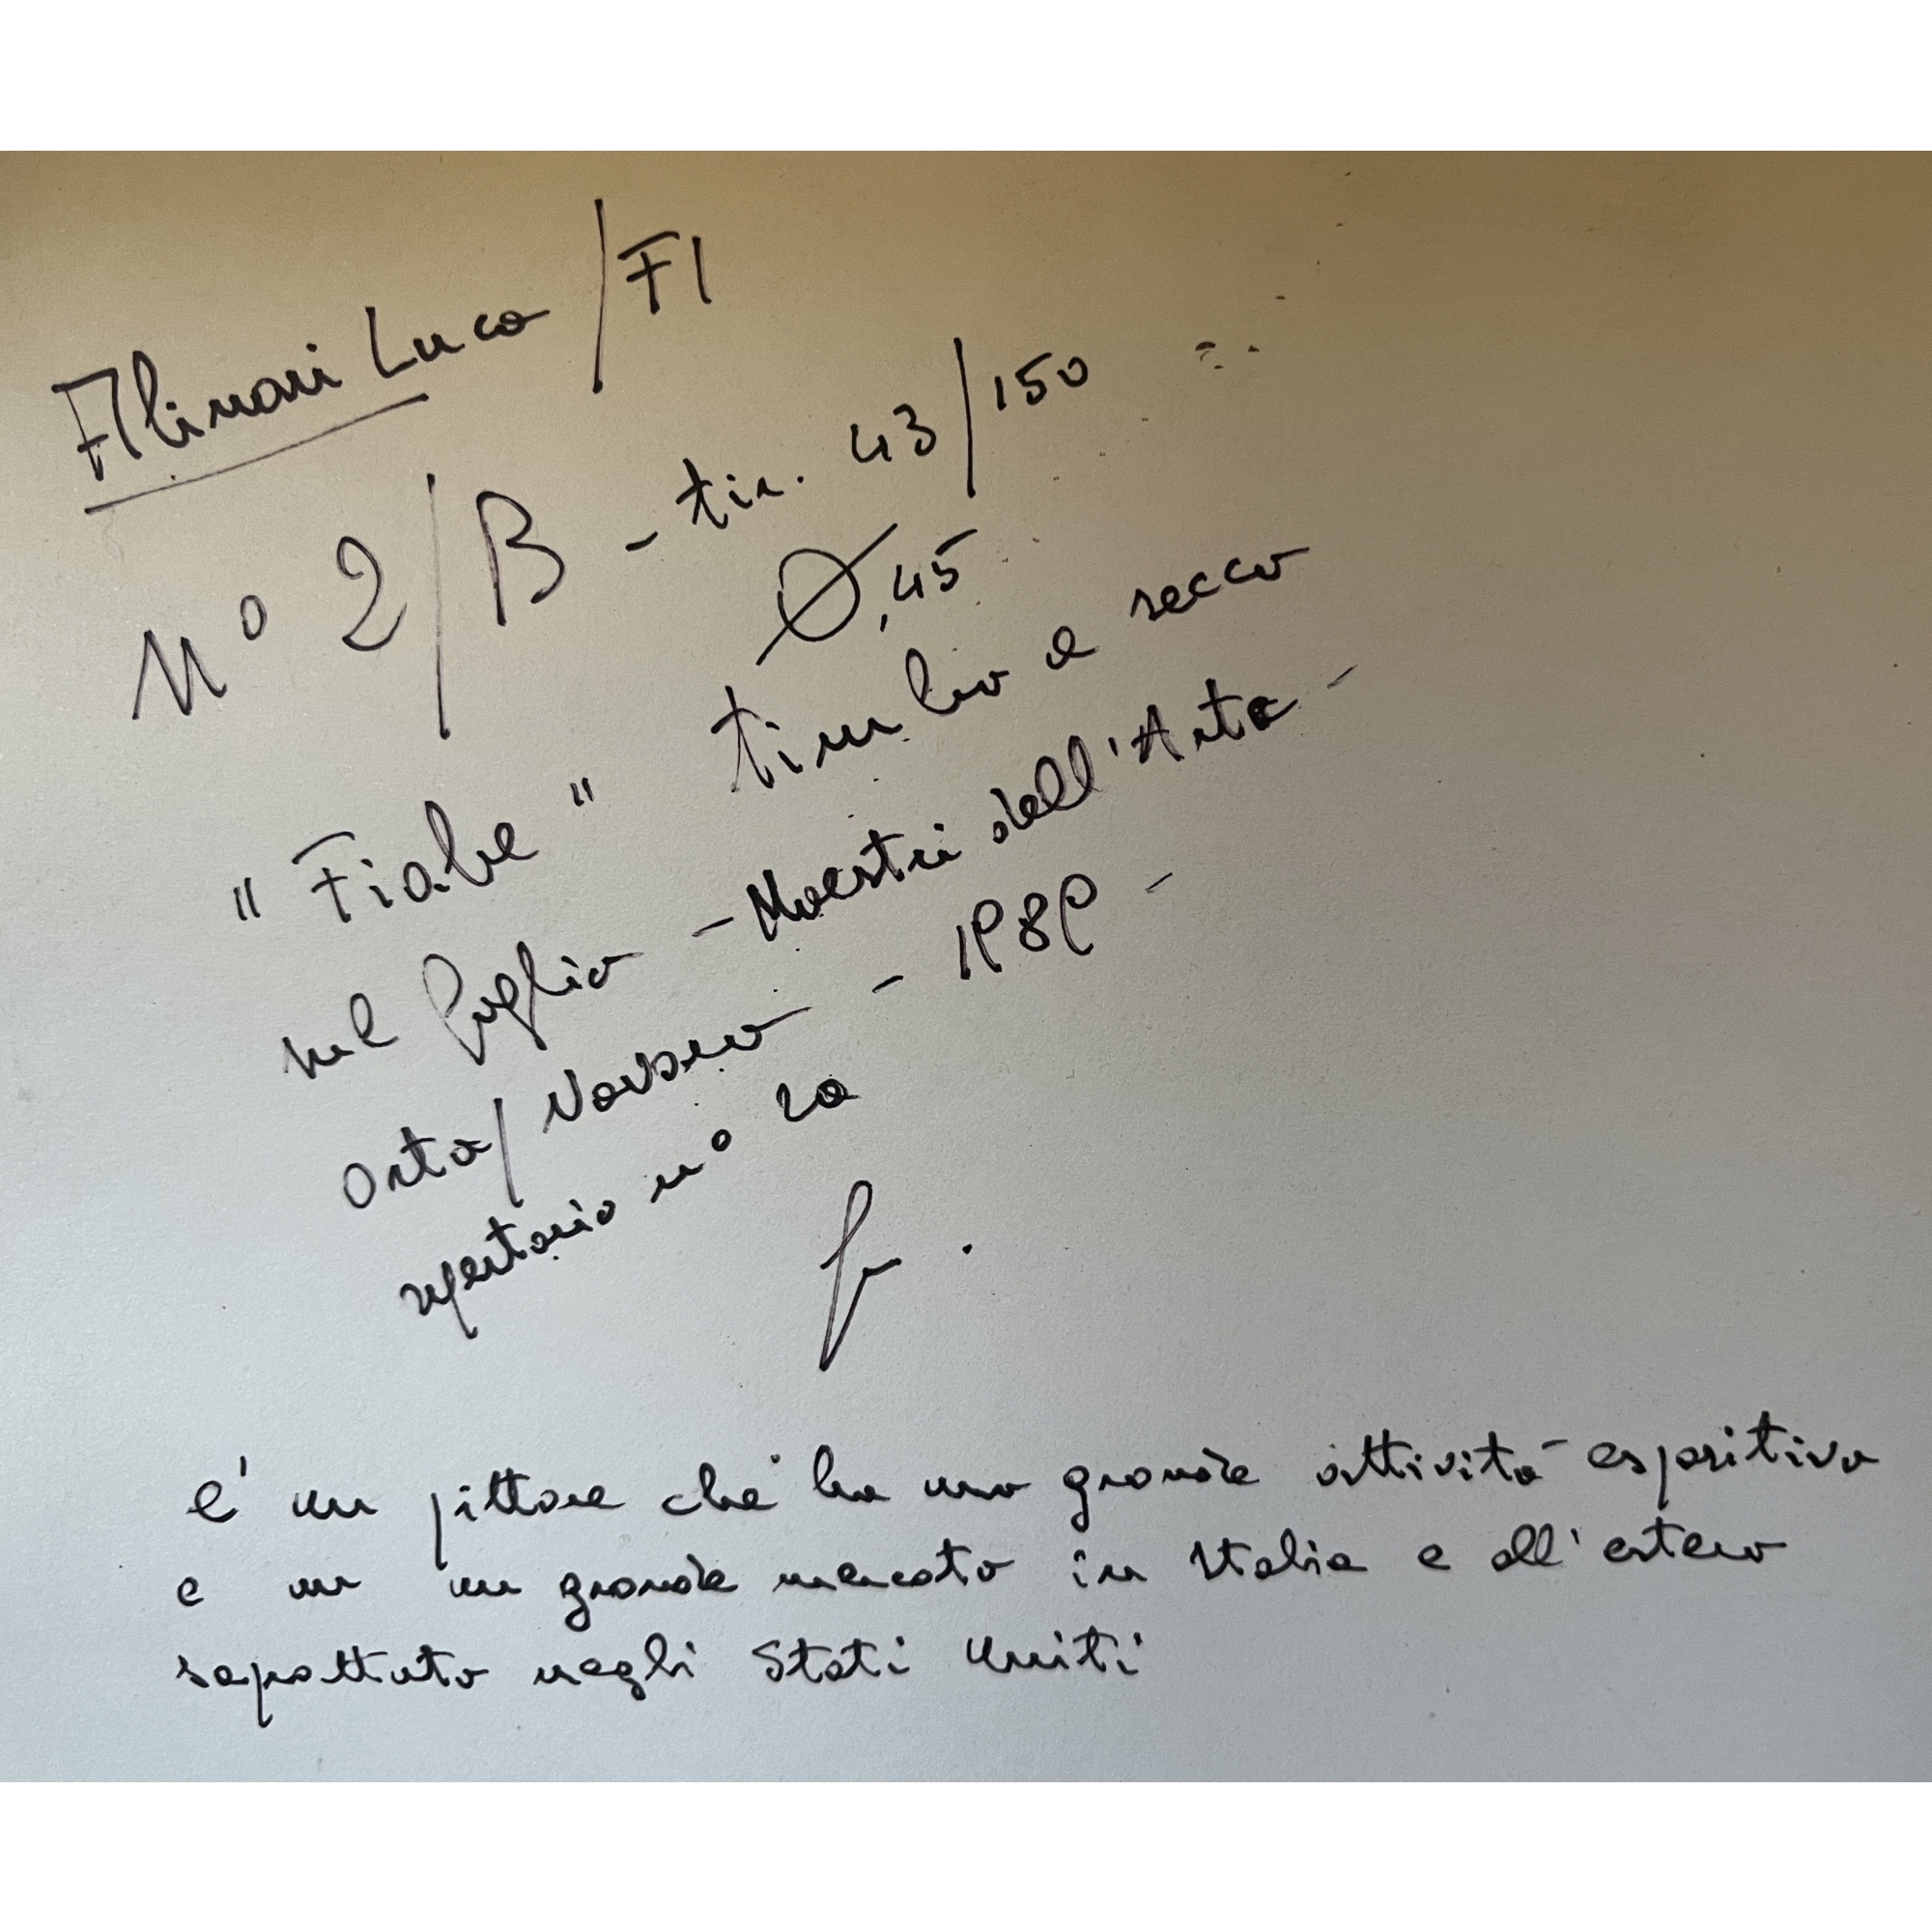 Alinari Luca / FI
N° 2/B - tir. 43/150
Ø, 45
"Fiabe" timbro a secco
nel foglio - Maestri dell'Arte -
Orta/Novara - 1989 -
repertorio n° 20
e' un pittore che ha una grande attività espositiva
e un un grande mercato in Italia e all'estero
sopattuto negli Stati Uniti